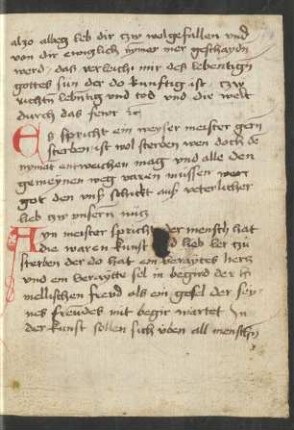 also alleg leb dir tzw wolgefallen vnd
von dir ewiglich nymer mer geschaydn
werd das verleich mir des lebentigen
gottes sun der do kunftig ist tzw
richtn lebntig vnd tod vnd die welt
durch das fewr
Es spricht ein weyser meister gern
sterben ist wol sterben wen doch de
nymat entweichen mag vnd alle den
gemeynen weg varen mussen wen
got den vns schickt aus veterlicher
lieb tzw vnsern nutz
Ayn meister spricht der mensch hat
die waren kunst vnd lieb ler tzu
sterben der do hat ein beraytes hertz
vnd ein beraytte sel in begird der hi
mellischen frewd als ein gesel der sey
nes frewdes mit begir wartet In
der kunst sollen sich vben all menschn